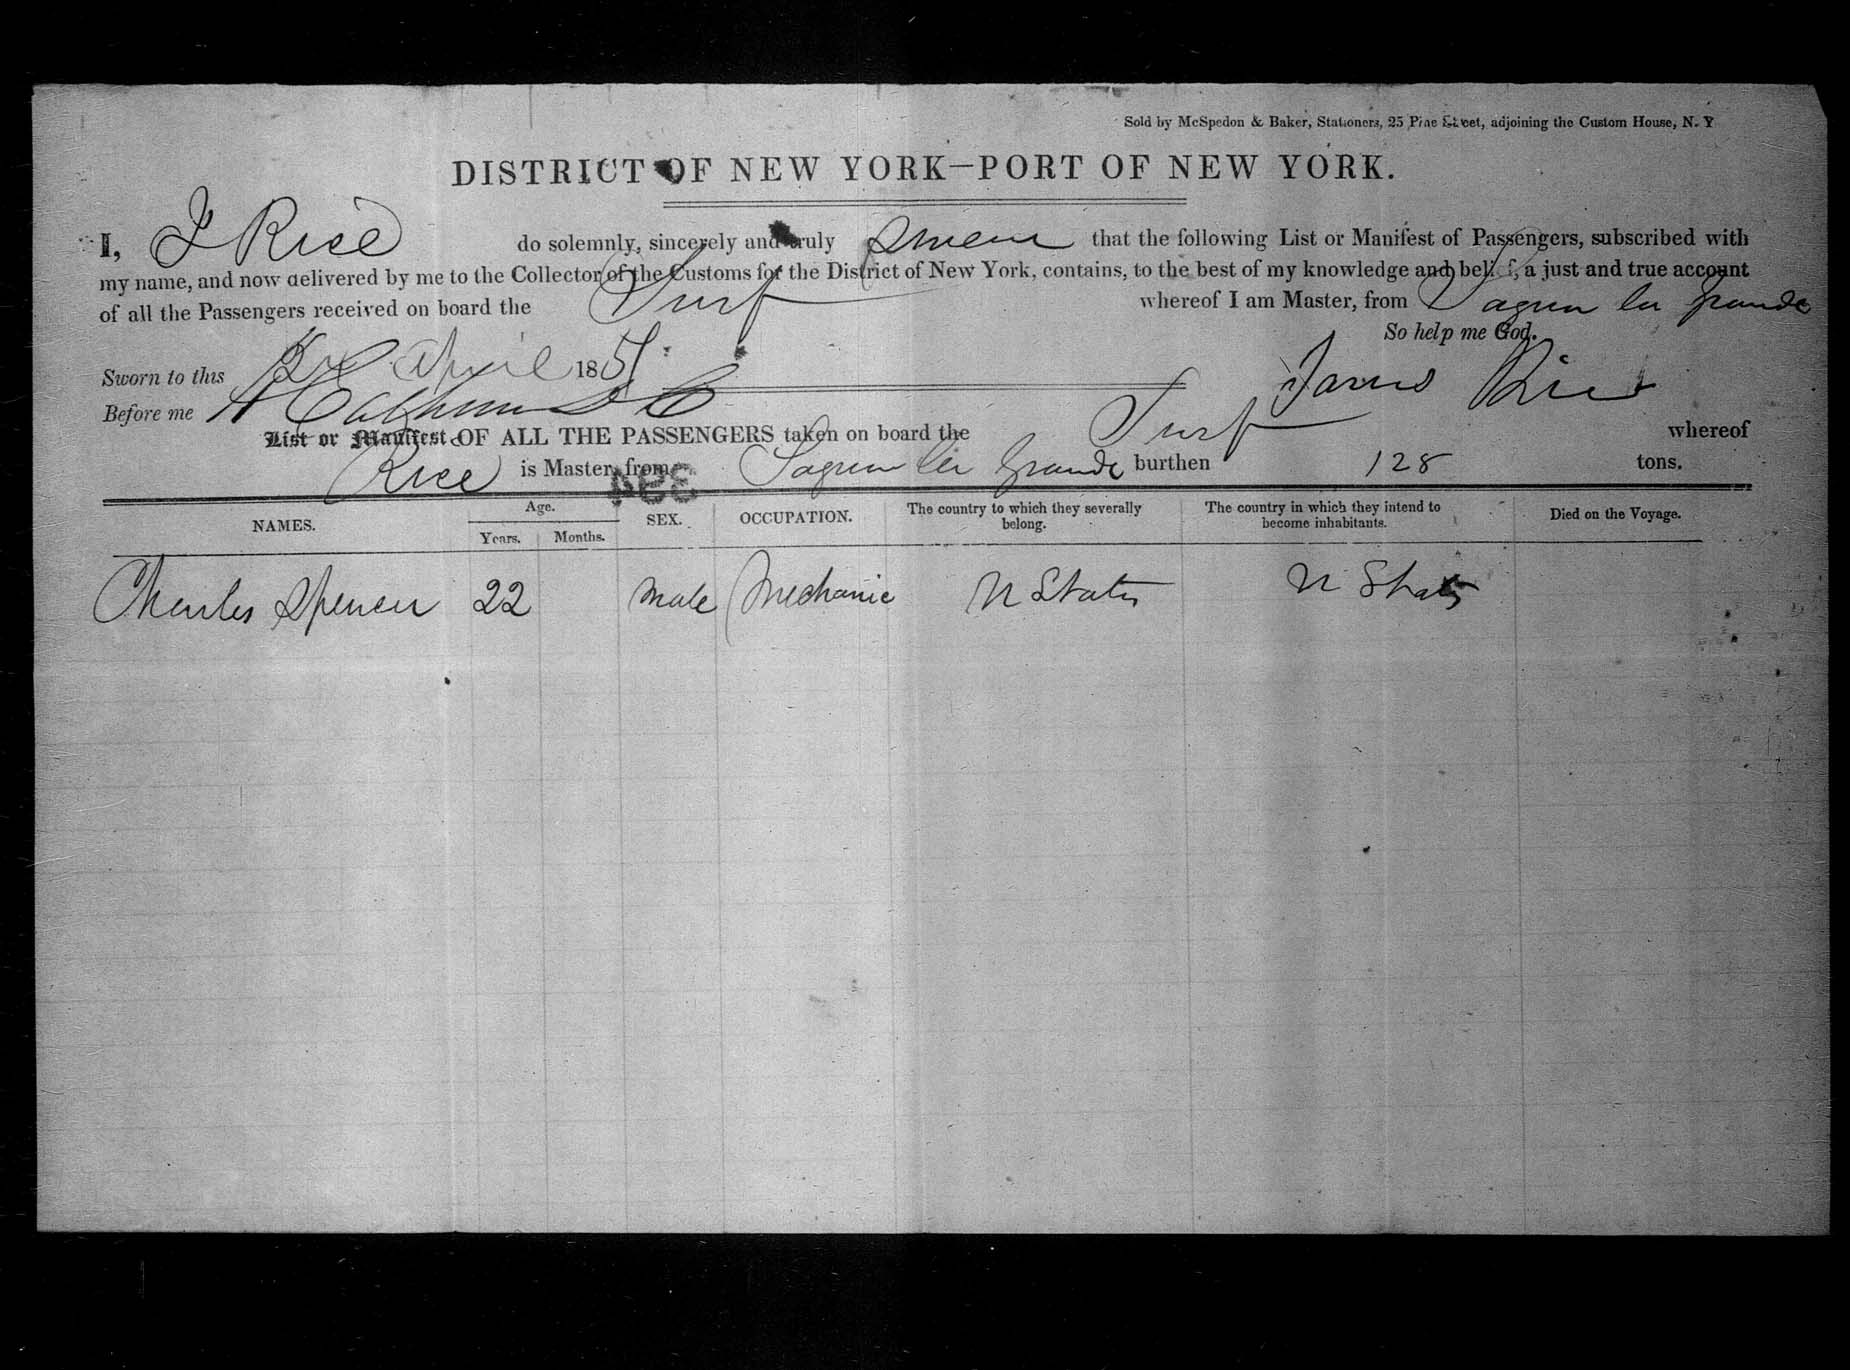 Sold by McSpedon & Baker, Stationers, 25 Pine Street, adjoining the Custom House, N. Y
DISTRICT OF NEW YORK—PORT OF NEW YORK.
I, J Rice do solemnly, sincerely and truly swear that the following List or Manifest of Passengers, subscribed with
my name, and now delivered by me to the Collector of the Customs for the District of New York, contains, to the best of my knowledge and belief, a just and true account
of all the Passengers received on board the Surf whereof I am Master, from Sagua la Grande
So help me God.
Sworn to this April 1851
James Rice
Before me
List or Manifest OF ALL THE PASSENGERS taken on board the Surf whereof
Rice is Master, from Sagua la Grande burthen 128 tons.
394
NAMES. Age. Years. Months. SEX. OCCUPATION. The country to which they severally belong. The country in which they intend to become inhabitants. Died on the Voyage.
Charles Spencer 22 Male Mechanic U States U States